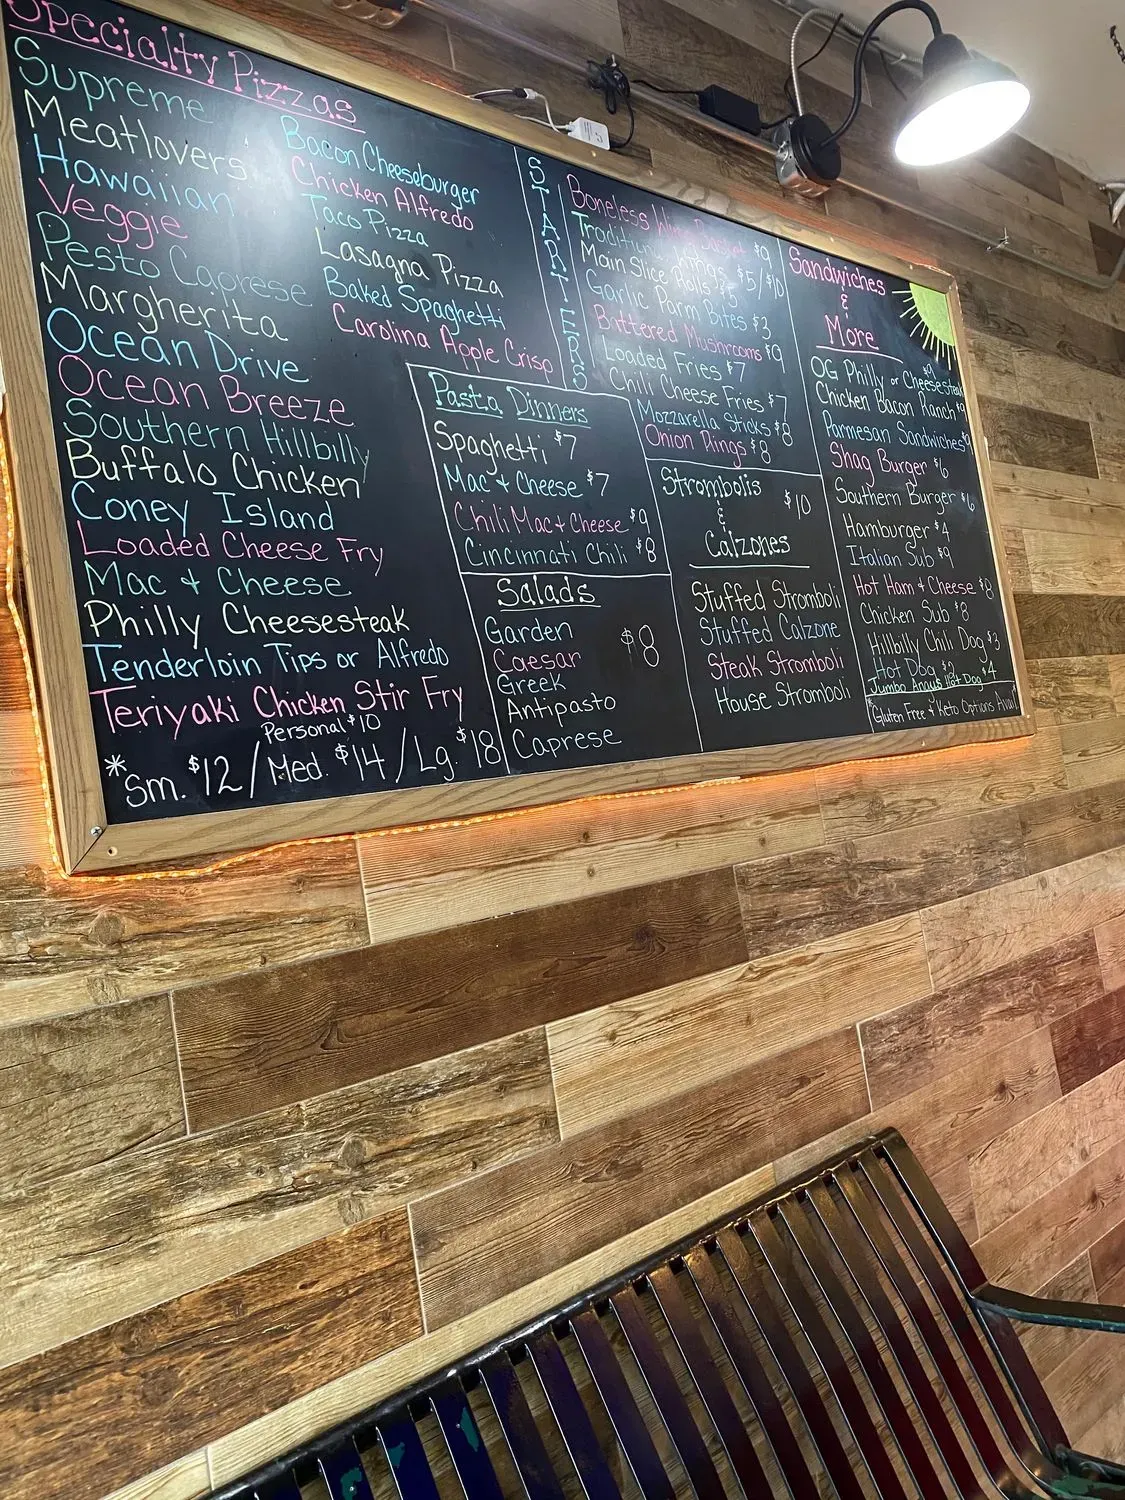 Specialty Pizzas
Supreme
Meatlovers
Hawaiian
Veggie
Pesto Caprese
Margherita
Ocean Drive
Ocean Breeze
Southern Hillbilly
Buffalo Chicken
Coney Island
Loaded Cheese Fry
Mac + Cheese
Philly Cheesesteak
Tenderloin Tips or Alfredo
Teriyaki Chicken Stir Fry
Personal $10
*Sm. $12/Med. $14/Lg. $18
Bacon Cheeseburger
Chicken Alfredo
Taco Pizza
Lasagna Pizza
Baked Spaghetti
Carolina Apple Crisp
Pasta Dinners
Spaghetti $7
Mac + Cheese $7
Chili Mac + Cheese $9
Cincinnati Chili $8
Salads
$8
Garden
Caesar
Greek
Antipasto
Caprese
STARTERS
Boneless Wing Basket $9
Traditional Wings $5/$10
Main Slice Rolls $5
Garlic Parm Bites $3
Battered Mushrooms $9
Loaded Fries $7
Chili Cheese Fries $7
Mozzarella Sticks $8
Onion Rings $8
Strombolis
&
Calzones
$10
Stuffed Stromboli
Stuffed Calzone
Steak Stromboli
House Stromboli
Sandwiches
&
More
OG Philly or Cheesesteak $9
Chicken Bacon Ranch $9
Parmesan Sandwiches $9
Shag Burger $6
Southern Burger $6
Hamburger $4
Italian Sub $9
Hot Ham + Cheese $8
Chicken Sub $8
Hillbilly Chili Dog $3
Hot Dog $2
Jumbo Angus Hot Dog $4
*Gluten Free + Keto Options Avail